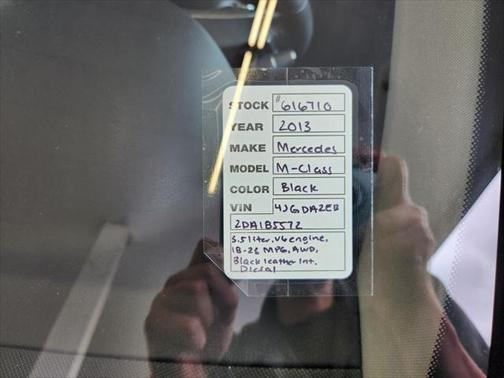 STOCK #616710
YEAR 2013
MAKE Mercedes
MODEL M-Class
COLOR Black
VIN 4JGDA2EB
2DA1B5572
3.5 liter, V6 engine,
18-23 MPG, AWD,
Black leather Int.
Diesel